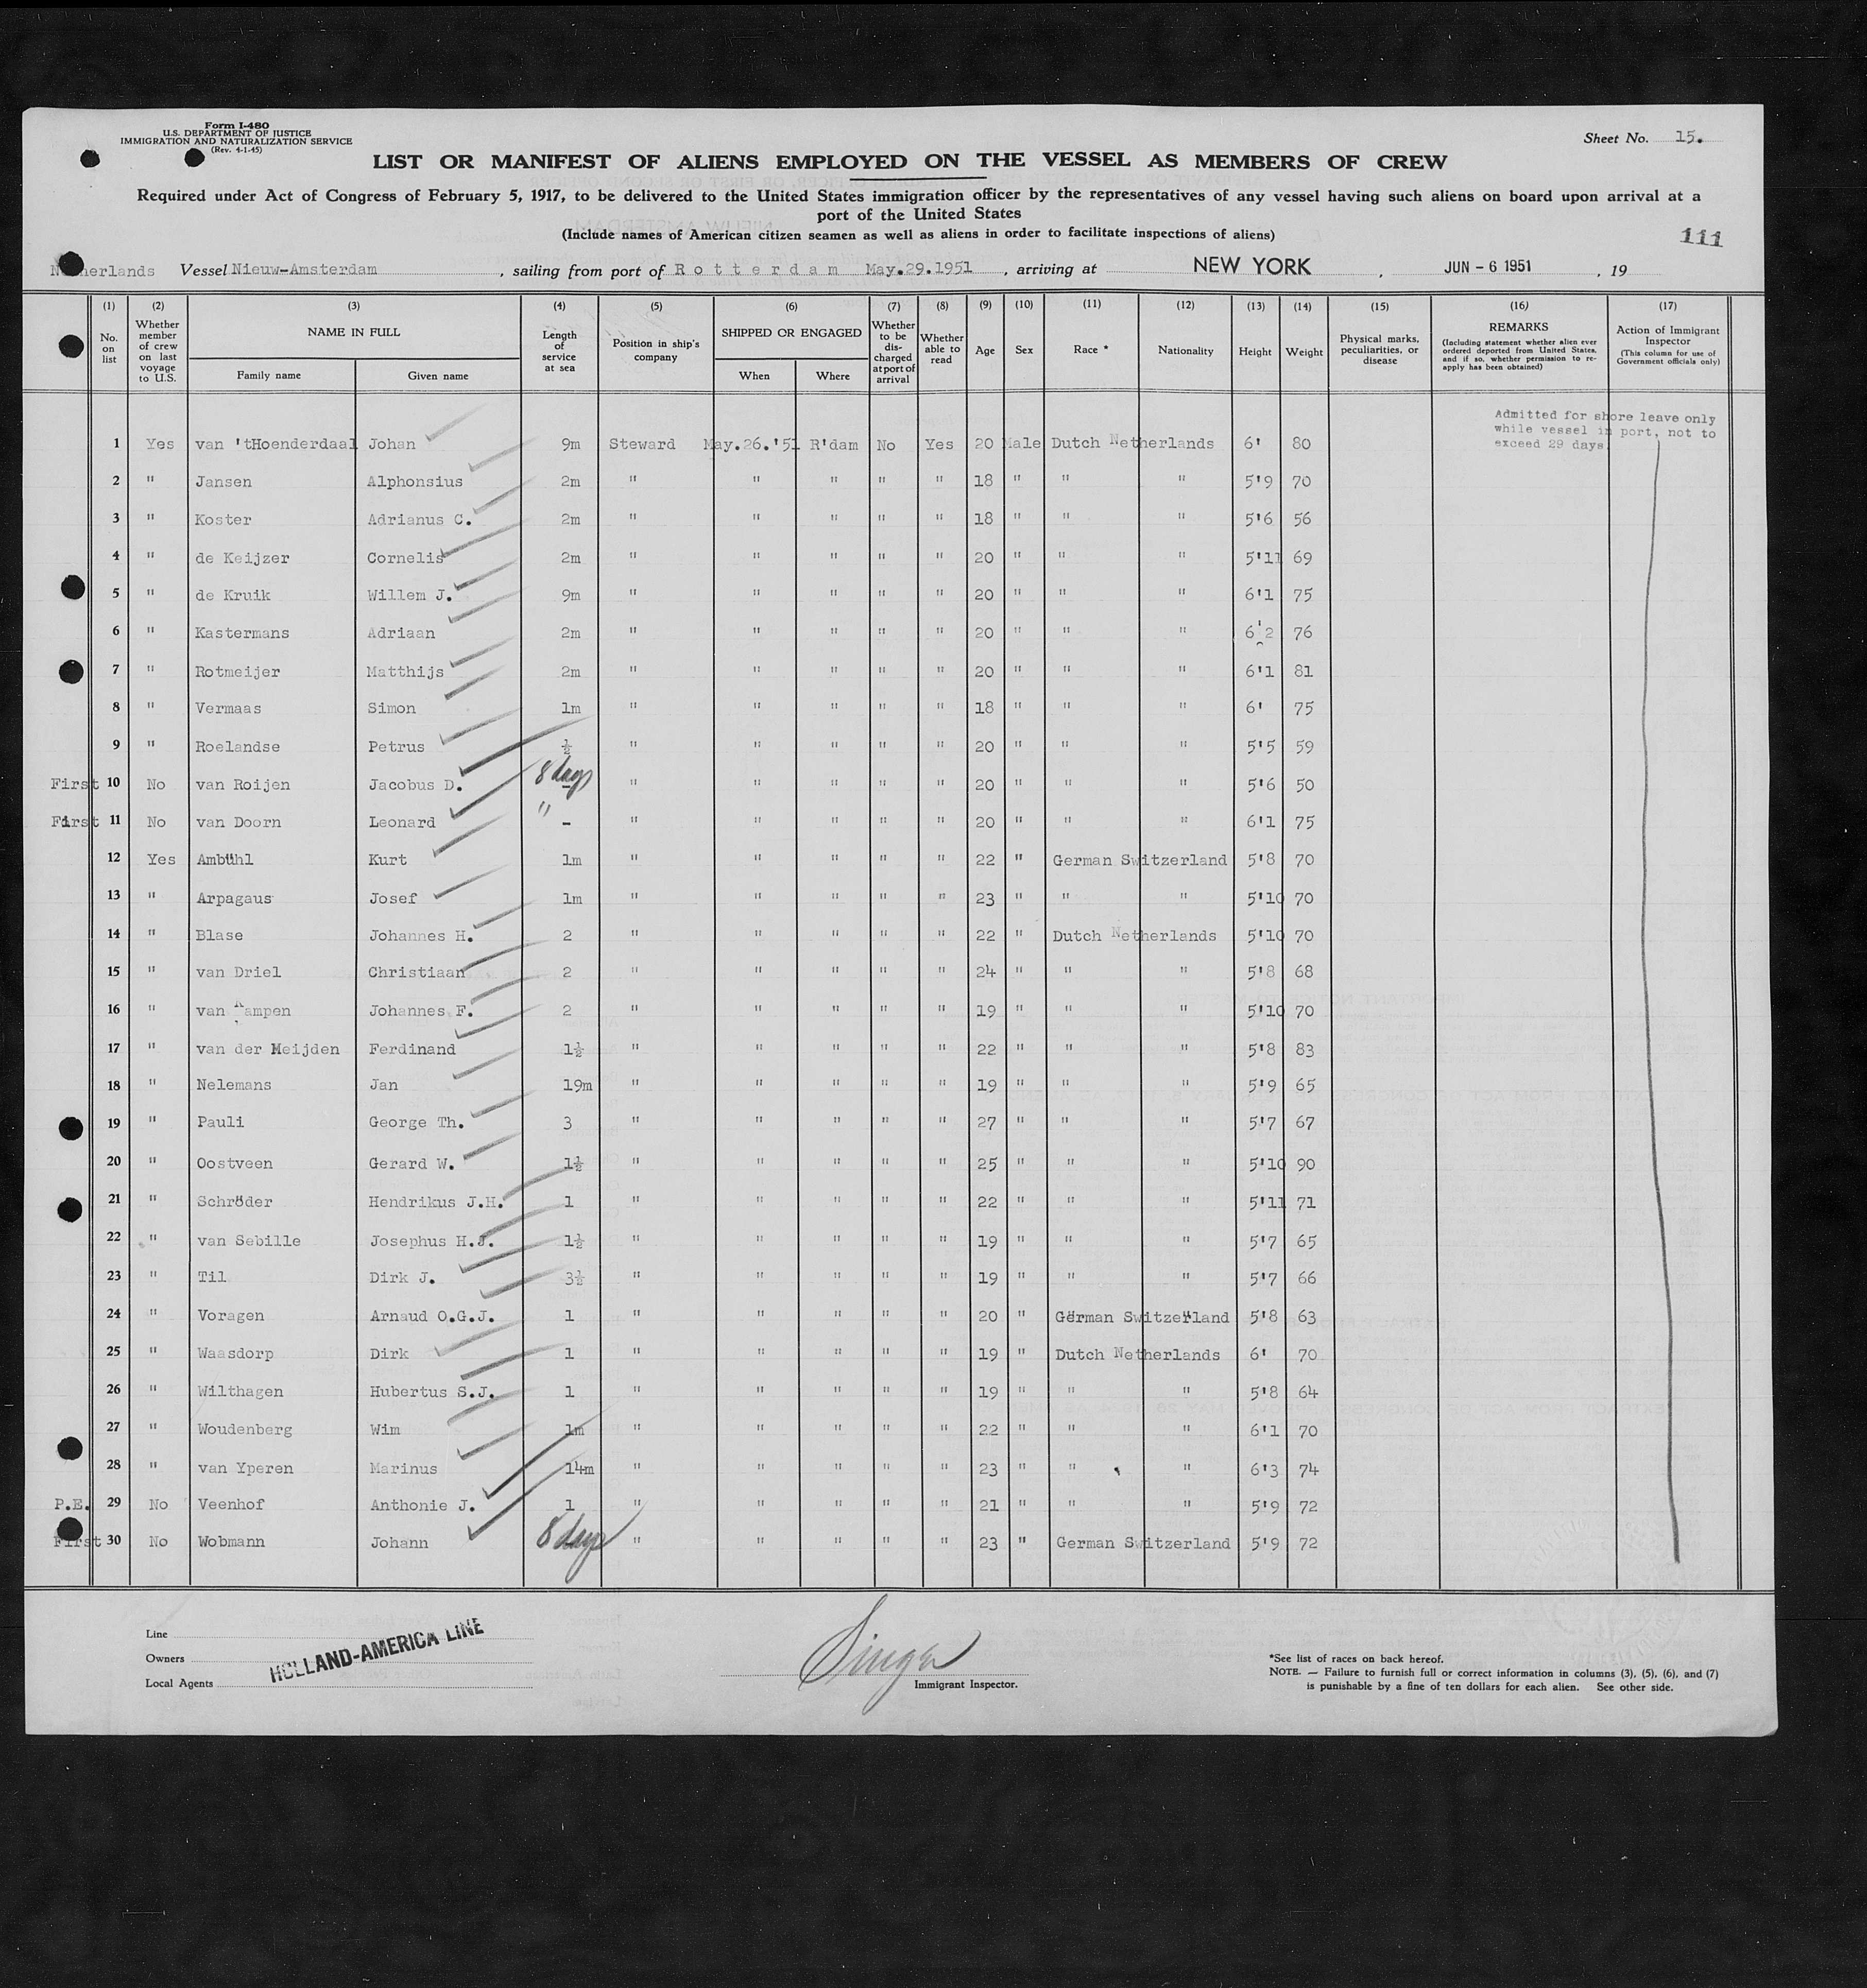 Form I-480
U.S. DEPARTMENT OF JUSTICE
IMMIGRATION AND NATURALIZATION SERVICE
(Rev. 4-1-45)
Sheet No. 15.
LIST OR MANIFEST OF ALIENS EMPLOYED ON THE VESSEL AS MEMBERS OF CREW
Required under Act of Congress of February 5, 1917, to be delivered to the United States immigration officer by the representatives of any vessel having such aliens on board upon arrival at a
port of the United States
(Include names of American citizen seamen as well as aliens in order to facilitate inspections of aliens)
111
Netherlands Vessel Nieuw-Amsterdam , sailing from port of Rotterdam May.29.1951 , arriving at NEW YORK , JUN - 6 1951 , 19
(1) (2) (3) (4) (5) (6) (7) (8) (9) (10) (11) (12) (13) (14) (15) (16) (17)
No. on list Whether member of crew on last voyage to U.S. NAME IN FULL Family name Given name Length of service at sea Position in ship's company SHIPPED OR ENGAGED When Where Whether to be discharged at port of arrival Whether able to read Age Sex Race * Nationality Height Weight Physical marks, peculiarities, or disease REMARKS (Including statement whether alien ever ordered deported from United States, and if so, whether permission to re-apply has been obtained) Action of Immigrant Inspector (This column for use of Government officials only)
Admitted for shore leave only
while vessel in port, not to
exceed 29 days.
1 Yes van 'tHoenderdaal Johan 9m Steward May.26.'51 R'dam No Yes 20 Male Dutch Netherlands 6' 80
2 " Jansen Alphonsius 2m " " " " " 18 " " " 5'9 70
3 " Koster Adrianus C. 2m " " " " " 18 " " " 5'6 56
4 " de Keijzer Cornelis 2m " " " " " 20 " " " 5'11 69
5 " de Kruik Willem J. 9m " " " " " 20 " " " 6'1 75
6 " Kastermans Adriaan 2m " " " " " 20 " " " 6'2 76
7 " Rotmeijer Matthijs 2m " " " " " 20 " " " 6'1 81
8 " Vermaas Simon 1m " " " " " 18 " " " 6' 75
9 " Roelandse Petrus ½ " " " " " 20 " " " 5'5 59
First 10 No van Roijen Jacobus D. 8 days - " " " " " 20 " " " 5'6 50
First 11 No van Doorn Leonard " - " " " " " 20 " " " 6'1 75
12 Yes Ambühl Kurt 1m " " " " " 22 " German Switzerland 5'8 70
13 " Arpagaus Josef 1m " " " " " 23 " " " 5'10 70
14 " Blase Johannes H. 2 " " " " " 22 " Dutch Netherlands 5'10 70
15 " van Driel Christiaan 2 " " " " " 24 " " " 5'8 68
16 " van Kampen Johannes F. 2 " " " " " 19 " " " 5'10 70
17 " van der Meijden Ferdinand 1½ " " " " " 22 " " " 5'8 83
18 " Nelemans Jan 19m " " " " " 19 " " " 5'9 65
19 " Pauli George Th. 3 " " " " " 27 " " " 5'7 67
20 " Oostveen Gerard W. 1½ " " " " " 25 " " " 5'10 90
21 " Schröder Hendrikus J.H. 1 " " " " " 22 " " " 5'11 71
22 " van Sebille Josephus H.J. 1½ " " " " " 19 " " " 5'7 65
23 " Til Dirk J. 3½ " " " " " 19 " " " 5'7 66
24 " Voragen Arnaud O.G.J. 1 " " " " " 20 " German Switzerland 5'8 63
25 " Waasdorp Dirk 1 " " " " " 19 " Dutch Netherlands 6' 70
26 " Wilthagen Hubertus S.J. 1 " " " " " 19 " " " 5'8 64
27 " Woudenberg Wim 1m " " " " " 22 " " " 6'1 70
28 " van Yperen Marinus 14m " " " " " 23 " " " 6'3 74
P.E. 29 No Veenhof Anthonie J. 1 " " " " " 21 " " " 5'9 72
First 30 No Wobmann Johann 8 days " " " " " 23 " German Switzerland 5'9 72
Line
Owners
Local Agents
HOLLAND-AMERICA LINE
Singer
Immigrant Inspector.
*See list of races on back hereof.
NOTE. — Failure to furnish full or correct information in columns (3), (5), (6), and (7)
is punishable by a fine of ten dollars for each alien. See other side.